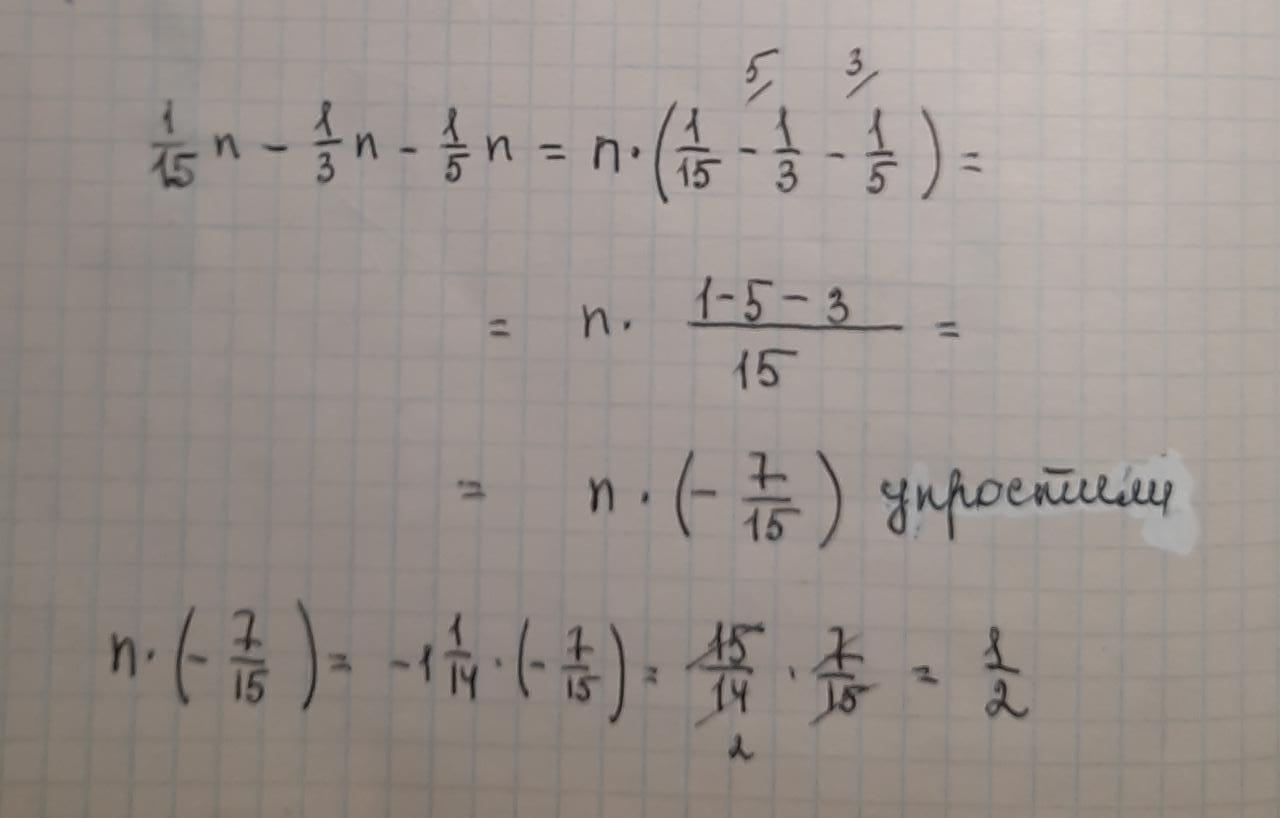 5/ 3/
1/15 n - 1/3 n - 1/5 n = n · (1/15 - 1/3 - 1/5) =
= n · (1-5-3)/15 =
= n · (- 7/15) упростили
n · (- 7/15) = -1 1/14 · (- 7/15) = 15/14 · 7/15 = 1/2
2